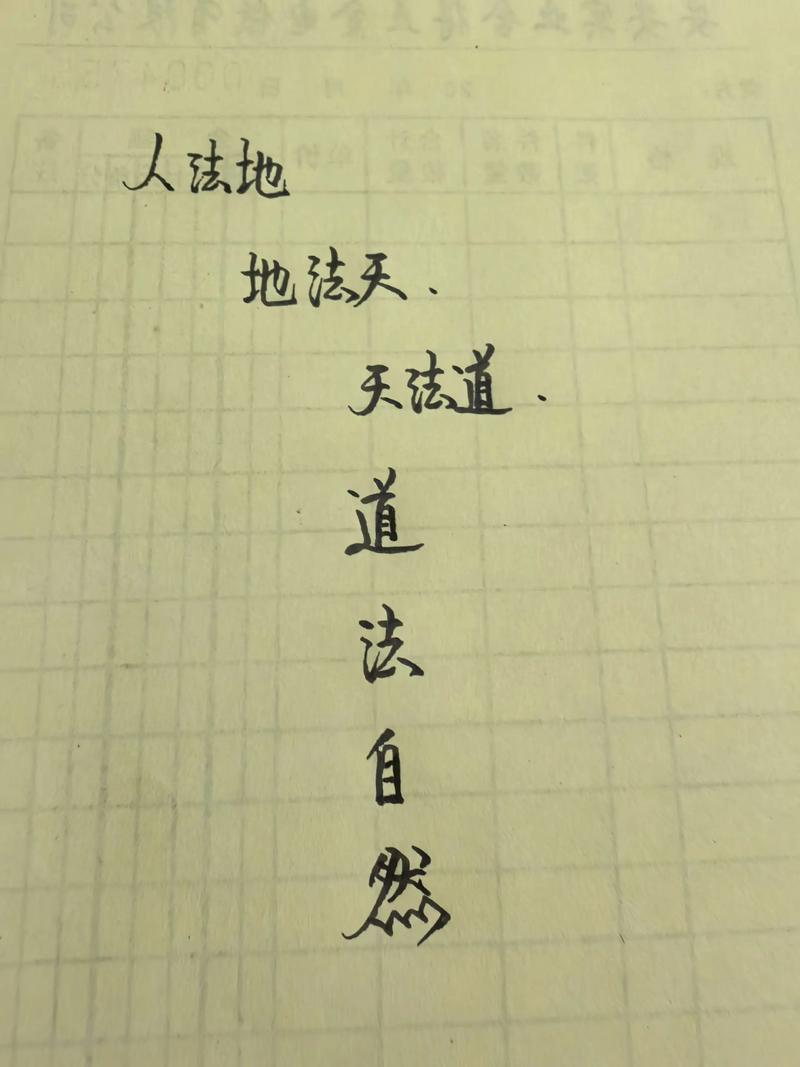 人法地
地法天.
天法道.
道
法
自
然